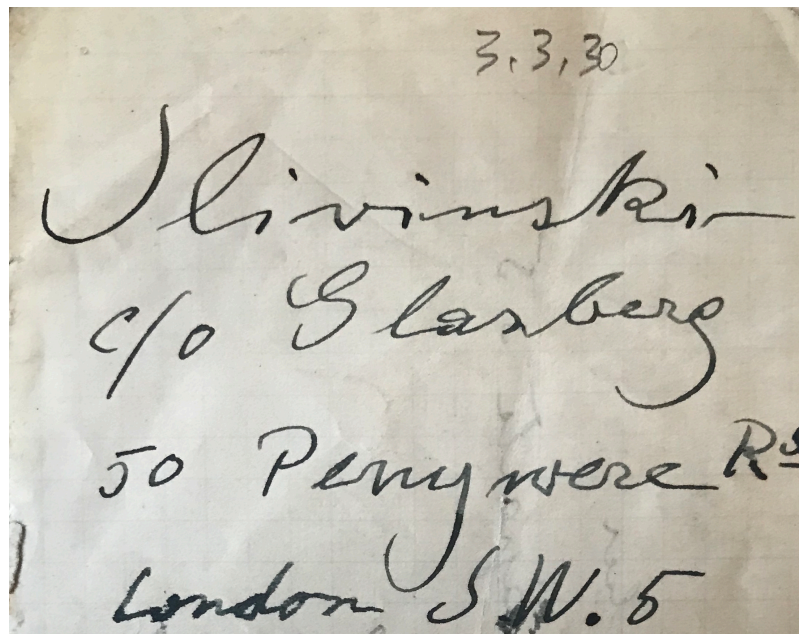 3.3.30
Slivinski
c/o Glasberg
50 Penywere Rd
London S.W.5